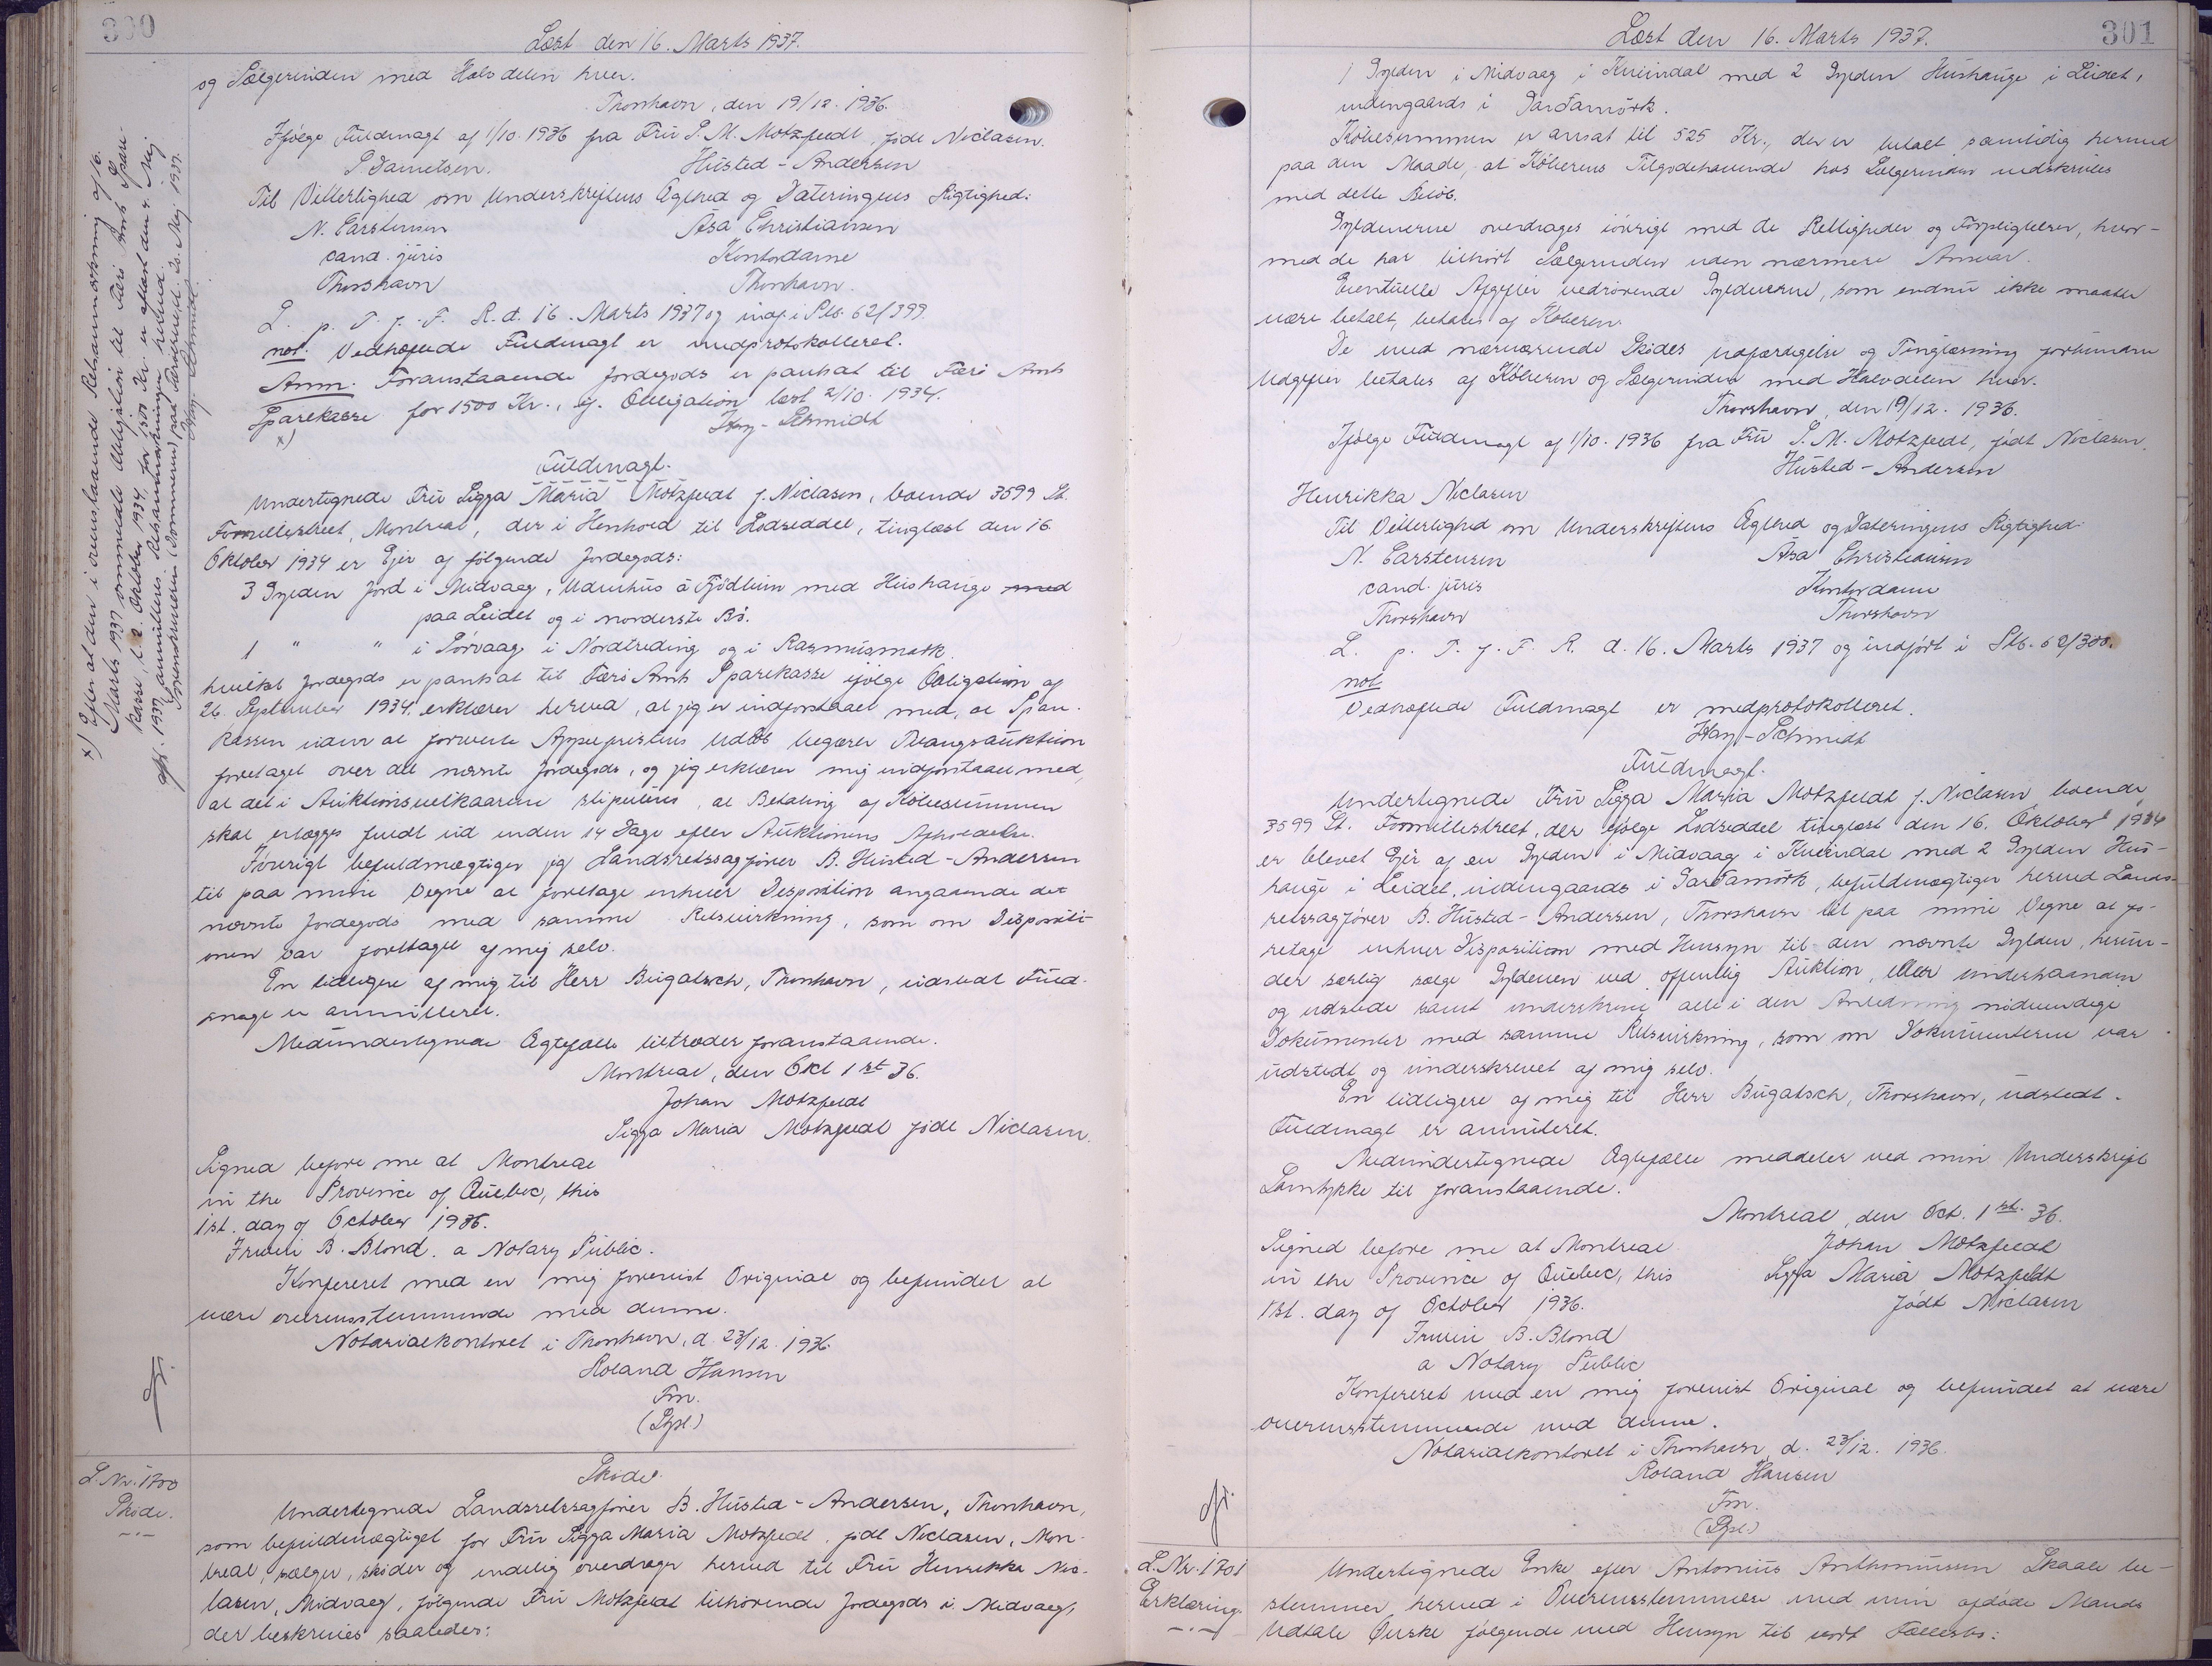 300
Læst den 16. Marts 1937.
og Sælgerinden med Halvdelen hver.
Thorshavn, den 19/12. 1936.
Ifølge Fuldmagt af 1/10. 1936 fra Fru S. M. Motzfeldt, født Niclasen.
S. Danielsen. Husted-Andersen
Til Vitterlighed om Underskriftens Ægthed og Dateringens Rigtighed:
N. Carstensen Åsa Christiansen
cand. juris Kontordame
Thorshavn Thorshavn.
L. p. T. f. F. R. d. 16. Marts 1937 og indf. i Skb. 62/399.
not. Vedhæftede Fuldmagt er medprotokolleret.
Anm. Foranstaaende Jordegods er pantsat til Færø Amts
Sparekasse for 1500 Kr., cfr. Obligation læst 2/10. 1934.
x) Hay-Schmidt
x) Efter at den i ovenstaaende Retsanmærkning af 16.
Marts 1937 ommeldte Obligation til Færø Amts Spare-
kasse, l. 2. Oktober 1934, for 1500 Kr. er aflæst den 4. Maj
1937, annulleres Retsanmærkningen herved.
Sorenskriveren (Dommeren) paa Færøerne, d. 25. Maj 1937.
Hay-Schmidt
Fuldmagt.
Undertegnede Fru Sigga Maria Motzfeldt f. Niclasen, boende 3599 St.
Formillestreet, Montreal, der i Henhold til Lodseddel, tinglæst den 16.
Oktober 1934 er Ejer af følgende Jordegods:
3 Gylden Jord i Midvaag, Udenhus á Fjødleim med Hushauge med
paa Leidet og i norderste Bø.
1 " " i Sørvaag i Nordtreding og i Rasmusmørk.
hvilket Jordegods er pantsat til Færø Amts Sparekasse ifølge Obligation af
26. September 1934. erklærer herved, at jeg er indforstaaet med, at Spare-
kassen uden at forvente Appelfristens Udløb begærer Tvangsauktion
foretaget over det nævnte Jordegods, og jeg erklærer mig indforstaaet med,
at det i Auktionsvilkaarene stipuleres, at Betaling af Købesummen
skal erlægges fuldt ud inden 14 Dage efter Auktionens Afholdelse.
Iøvrigt befuldmægtiger jeg Landsretssagfører B. Husted-Andersen
til paa mine Vegne at foretage enhver Disposition angaaende det
nævnte Jordegods med samme Retsvirkning, som om Dispositi-
onen var foretaget af mig selv.
En tidligere af mig til Herr Bugatsch, Thorshavn, udstedt Fuld-
magt er annulleret.
Medundertegnede Ægtefælle tiltræder foranstaaende.
Montreal, den Okt 1st 36.
Johan Motzfeldt
Sigga Maria Motzfeldt født Niclasen.
Signed before me at Montreal
in the Province of Quebec, this
1st. day of October 1936.
Irwin B. Blond. a Notary Public.
Konfereret med en mig forevist Original og befundet at
være overensstemmende med denne.
Notarialkontoret i Thorshavn, d. 23/12. 1936.
Roland Hansen
Fm.
(Sgl.)
cfr.
L. Nr. 1700
Skøde.
Skøde.
Undertegnede Landsretssagfører B. Husted-Andersen, Thorshavn,
som befuldmægtiget for Fru Sigga Maria Motzfeldt, født Niclasen, Mon-
treal, sælger, skøder og endelig overdrager herved til Fru Henrikka Nic-
lasen, Midvaag, følgende Fru Motzfeldt tilhørende Jordegods i Midvaag,
der beskrives saaledes:
Læst den 16. Marts 1937.
301
1 Gylden i Midvaag i Kvíindal med 2 Gylden Hushauge i Leidet,
indengaards i Garðamörk.
Købesummen er ansat til 525 Kr., der er betalt samtidig hermed
paa den Maade, at Køberens Tilgodehavende hos Sælgerinden nedskrives
med dette Beløb.
Gyldenerne overdrages iøvrigt med de Rettigheder og Forpligtelser, hvor-
med de har tilhørt Sælgerinden uden nærmere Ansvar.
Eventuelle Afgifter vedrørende Gyldenerne, som endnu ikke maatte
være betalt, betales af Køberen.
De med nærværende Skødes Udfærdigelse og Tinglæsning forbundne
Udgifter betales af Køberen og Sælgerinden med Halvdelen hver.
Thorshavn, den 19/12. 1936.
Ifølge Fuldmagt af 1/10. 1936 fra Fru S. M. Motzfeldt, født Niclasen.
Husted-Andersen
Henrikka Niclasen
Til Vitterlighed om Underskriftens Ægthed og Dateringens Rigtighed:
N. Carstensen Åsa Christiansen
cand. juris Kontordame
Thorshavn Thorshavn
L. p. T. f. F. R. d. 16. Marts 1937 og indført i Skb. 62/300.
not
Vedhæftede Fuldmagt er medprotokolleret.
Hay-Schmidt
Fuldmagt.
Undertegnede Fru Sigga Maria Motzfeldt f. Niclasen boende
3599 St. Formillestreet, der ifølge Lodseddel tinglæst den 16. Oktober 1934
er blevet Ejer af en Gylden i Midvaag i Kvíindal med 2 Gylden Hus-
hauge i Leidet, indengaards i Garðamörk, befuldmægtiger herved Lands-
retssagfører B. Husted-Andersen, Thorshavn til paa mine Vegne at fo-
retage enhver Disposition med Hensyn til den nævnte Gylden, herun-
der særlig sælge Gyldenen ved offentlig Auktion, eller underhaanden
og udstede samt underskrive alle i den Anledning nødvendige
Dokumenter med samme Retsvirkning, som om Dokumenterne var
udstedt og underskrevet af mig selv.
En tidligere af mig til Herr Bugatsch, Thorshavn, udstedt
Fuldmagt er annulleret.
Medundertegnede Ægtefælle meddeler ved min Underskrift
Samtykke til foranstaaende.
Montreal, den Oct. 1st. 36.
Signed before me at Montreal Johan Motzfeldt
in the Province of Quebec, this Sigga Maria Motzfeldt
1st. day of October 1936. født Niclasen
Irwin B. Blond
a Notary Public
Konfereret med en mig forevist Original og befundet at være
overensstemmende med denne.
Notarialkontoret i Thorshavn, d. 23/12. 1936.
Roland Hansen
Fm.
(Sgl.)
cfr.
L. Nr. 1701
Erklæring.
Undertegnede Enke efter Antonius Anthoniussen Skaale be-
stemmer herved i Overensstemmelse med min afdøde Mands
udtalte Ønske følgende med Hensyn til vort Fællesbo: